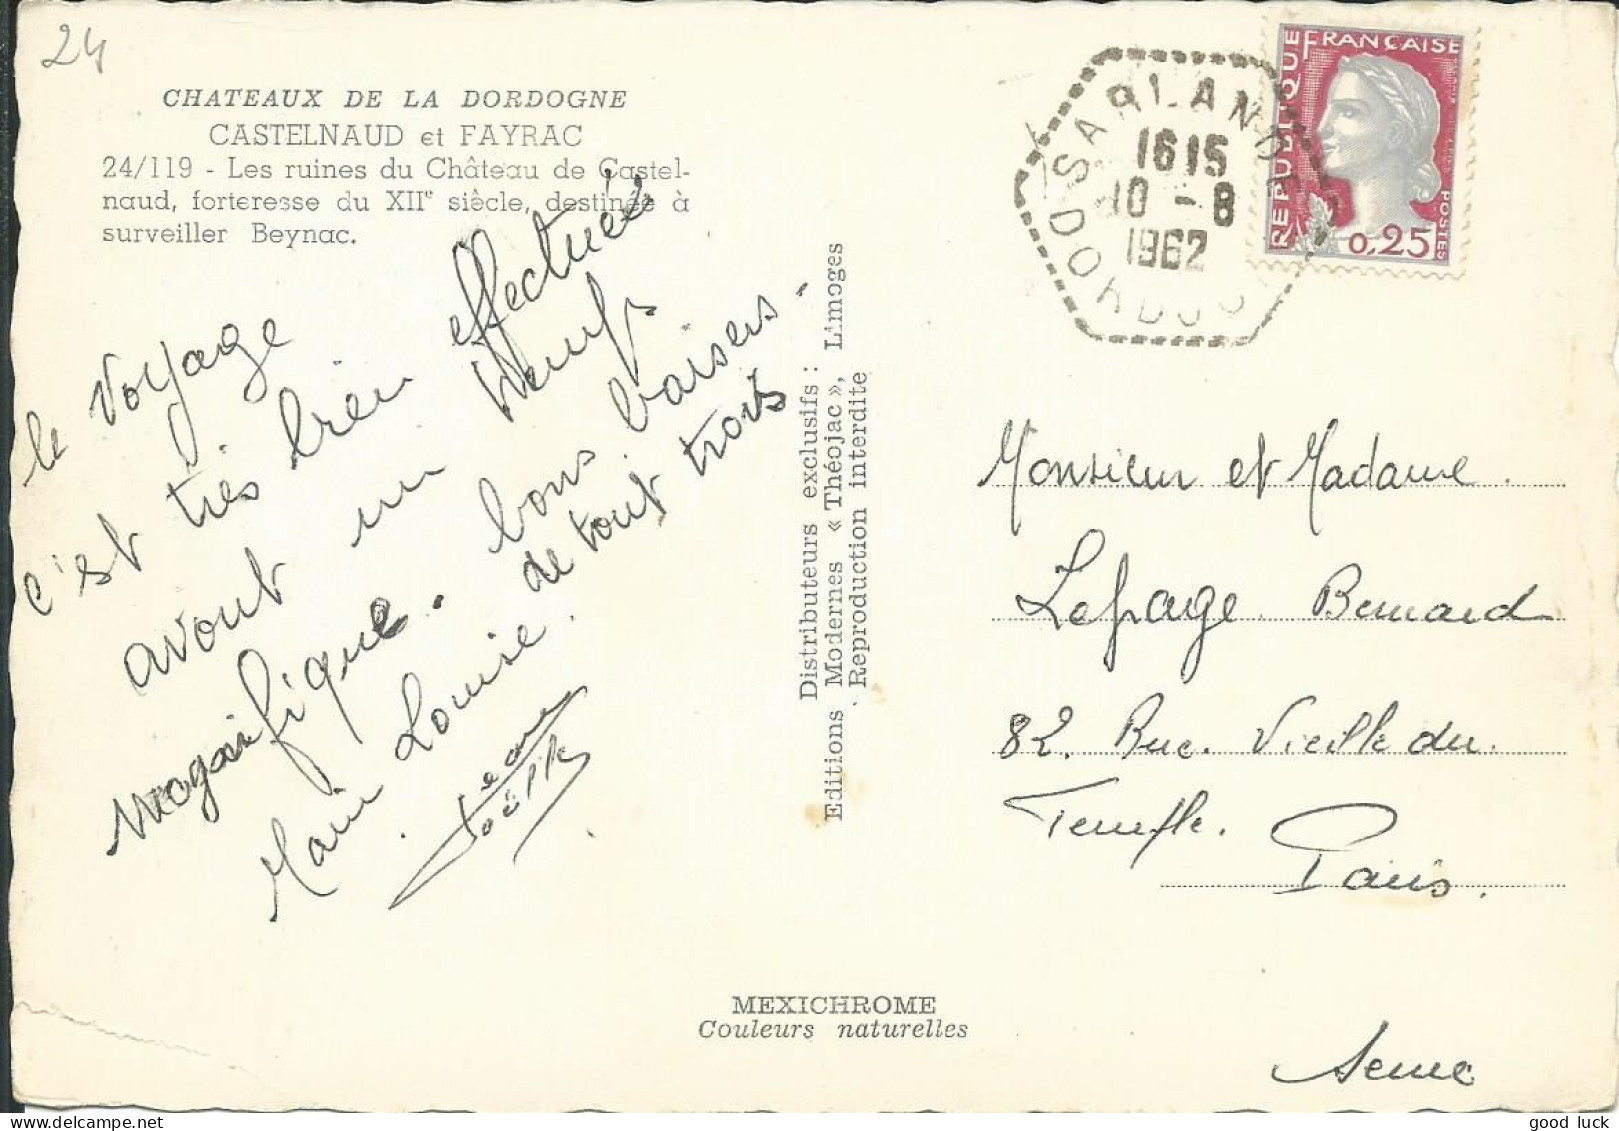 24
CHATEAUX DE LA DORDOGNE
CASTELNAUD et FAYRAC
24/119 - Les ruines du Château de Castel-
naud, forteresse du XIIe siècle, destinée à
surveiller Beynac.
le voyage
c'est très bien effectuée
avont un
magnifique. bons baisers.
de tout trois
Marie Louise.
Jeane
Joëlle
Distributeurs exclusifs :
Editions Modernes « Théojac », Limoges
Reproduction interdite
MEXICHROME
Couleurs naturelles
SARLANDE
1615
10 - 8
1962
DORDOG
REPUBLIQUE FRANÇAISE
POSTES
0,25
Monsieur et Madame.
Lepage Bernard
82. Rue. Vieille du.
Temple.
Paris.
Seine
good luck